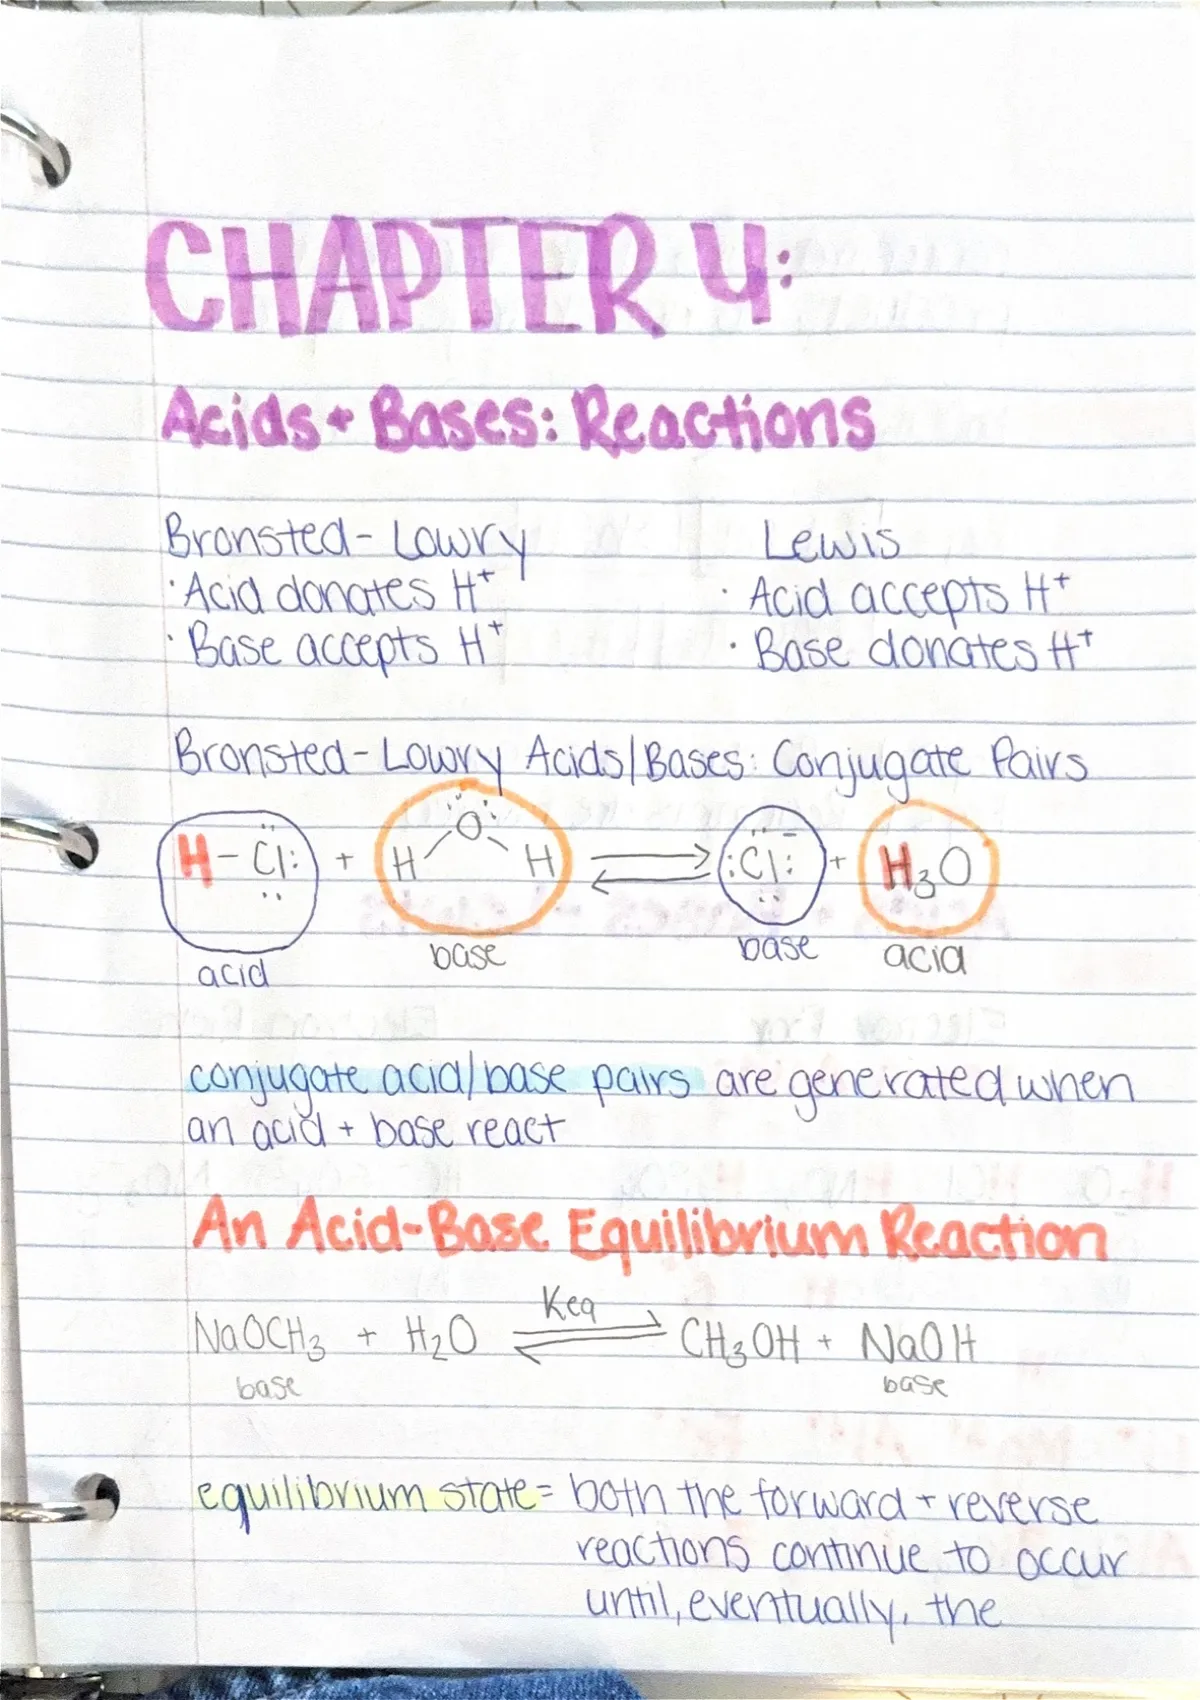 CHAPTER 4:
Acids + Bases: Reactions
Bronsted-Lowry
· Acid donates H⁺
· Base accepts H⁺
Lewis
· Acid accepts H⁺
· Base donates H⁺
Bronsted-Lowry Acids/Bases: Conjugate Pairs
H-Cl: + H O H ⇌ :Cl:⁻ + H₃O
acid base base acid
conjugate acid/base pairs are generated when
an acid + base react
An Acid-Base Equilibrium Reaction
Keq
NaOCH₃ + H₂O ⇌ CH₃OH + NaOH
base base
equilibrium state = both the forward + reverse
reactions continue to occur
until, eventually, the